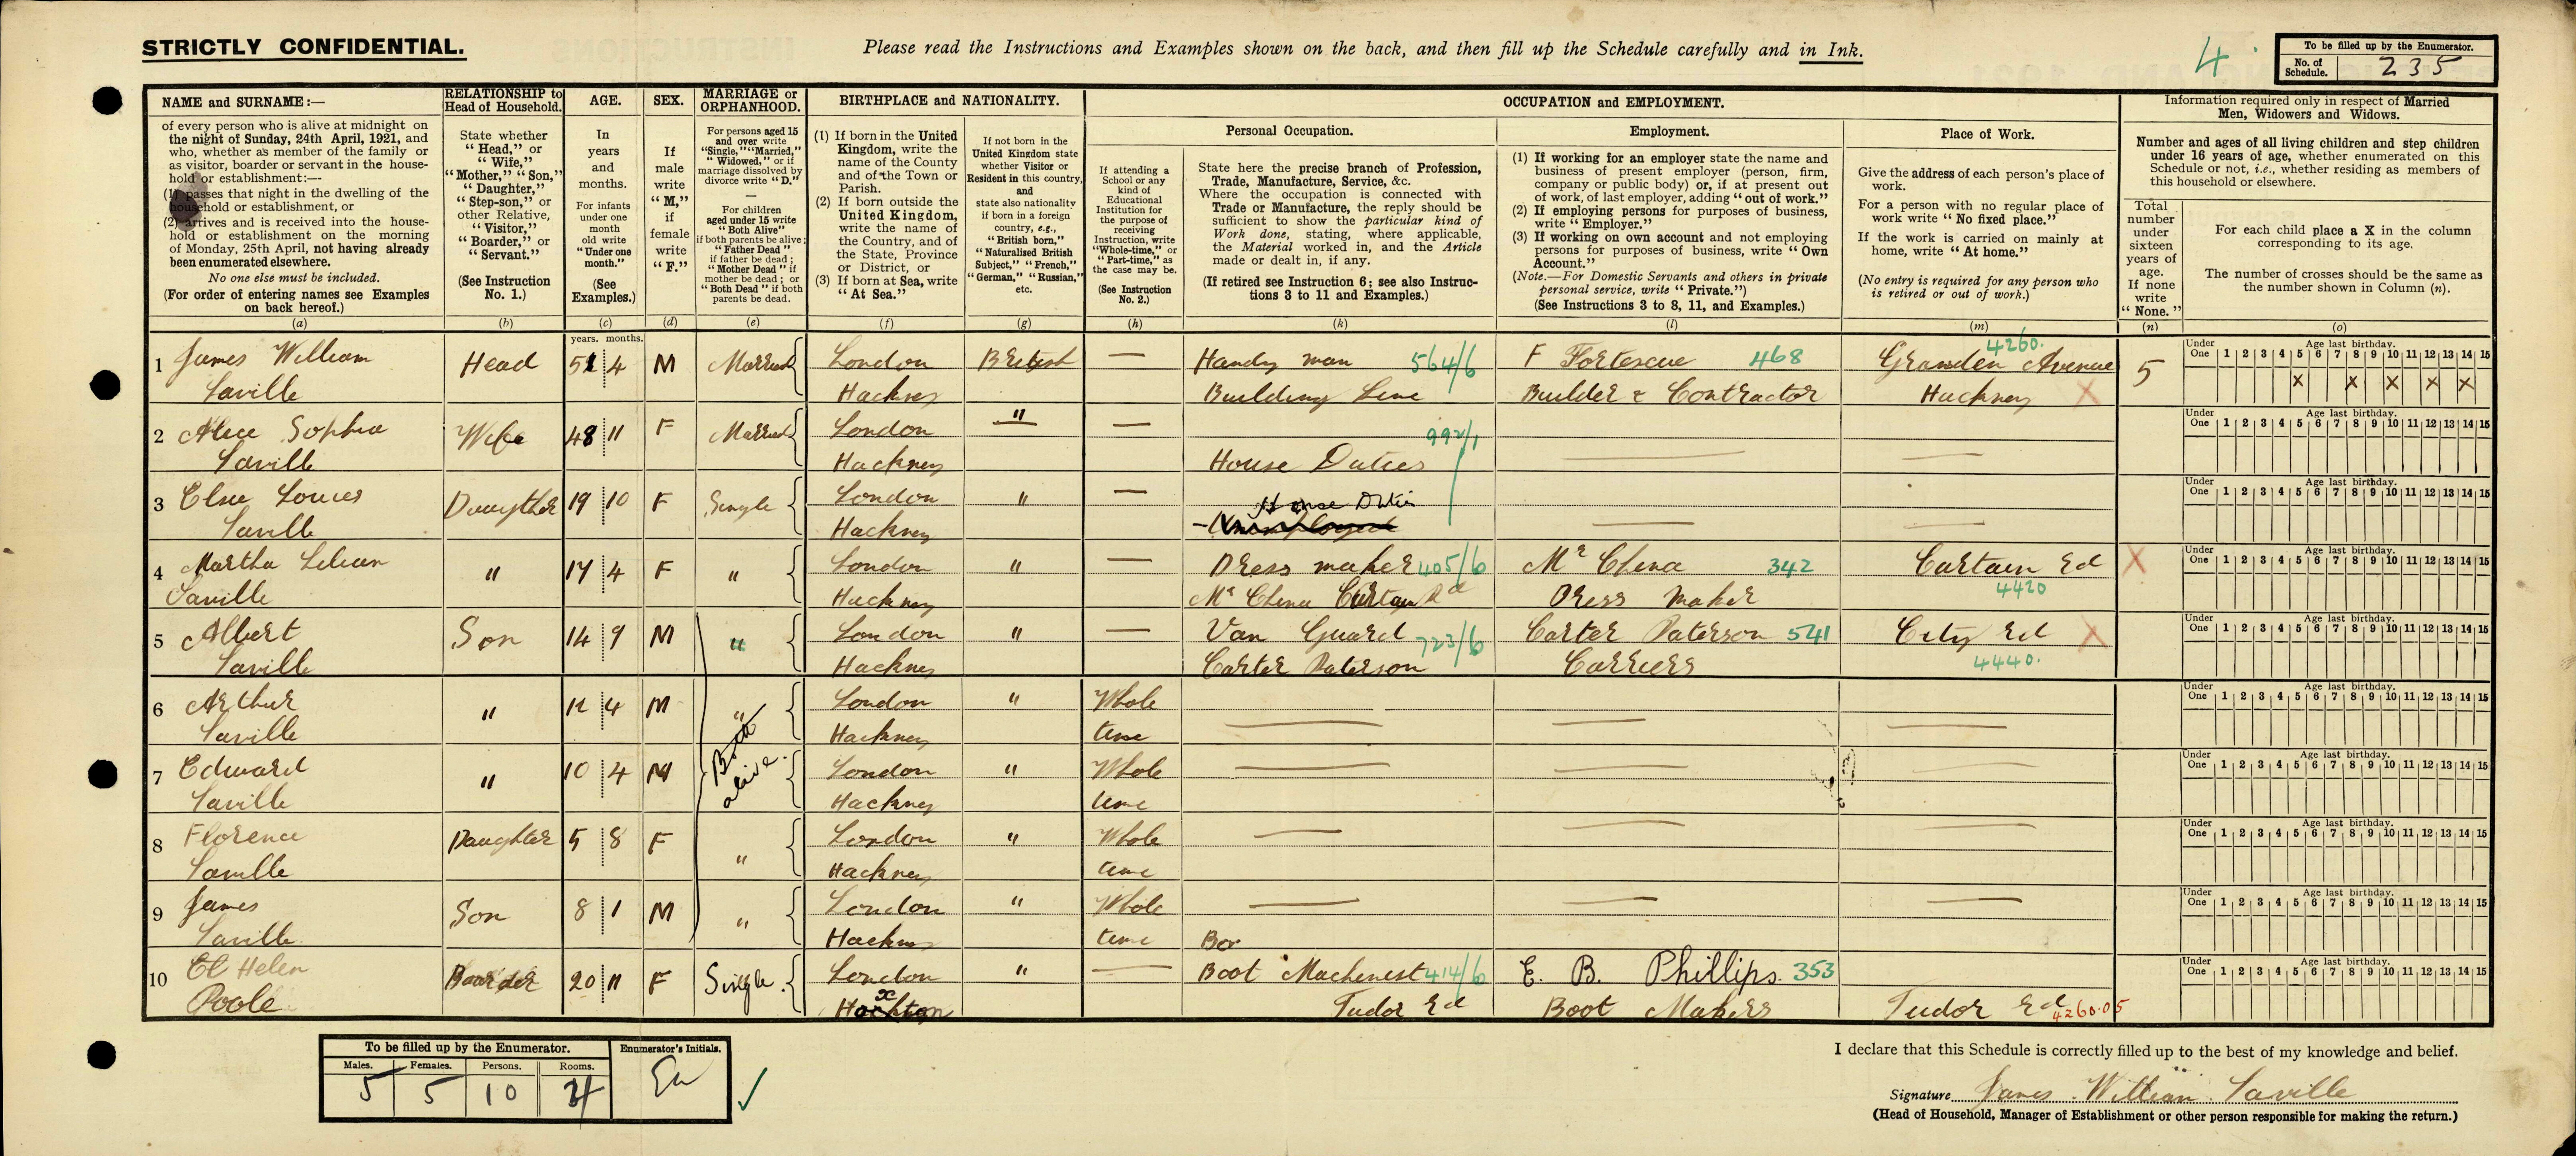 STRICTLY CONFIDENTIAL.
Please read the Instructions and Examples shown on the back, and then fill up the Schedule carefully and in Ink.
4.
To be filled up by the Enumerator.
No. of Schedule. 235
NAME and SURNAME:—
of every person who is alive at midnight on
the night of Sunday, 24th April, 1921, and
who, whether as member of the family or
as visitor, boarder or servant in the house-
hold or establishment:—
(1) passes that night in the dwelling of the
household or establishment, or
(2) arrives and is received into the house-
hold or establishment on the morning
of Monday, 25th April, not having already
been enumerated elsewhere.
No one else must be included.
(For order of entering names see Examples
on back hereof.)
(a)
RELATIONSHIP to
Head of Household.
State whether
"Head," or
"Wife,"
"Mother," "Son,"
"Daughter,"
"Step-son," or
other Relative,
"Visitor,"
"Boarder," or
"Servant."
(See Instruction
No. 1.)
(b)
AGE.
In
years
and
months.
For infants
under one
month
old write
"Under one
month."
(See
Examples.)
(c)
years. months.
SEX.
If
male
write
"M,"
if
female
write
"F."
(d)
MARRIAGE or
ORPHANHOOD.
For persons aged 15
and over write
"Single," "Married,"
"Widowed," or if
marriage dissolved by
divorce write "D."
For children
aged under 15 write
"Both Alive"
if both parents be alive;
"Father Dead"
if father be dead;
"Mother Dead" if
mother be dead; or
"Both Dead" if both
parents be dead.
(e)
BIRTHPLACE and NATIONALITY.
(1) If born in the United
Kingdom, write the
name of the County
and of the Town or
Parish.
(2) If born outside the
United Kingdom,
write the name of
the Country, and of
the State, Province
or District, or
(3) If born at Sea, write
"At Sea."
(f)
If not born in the
United Kingdom state
whether Visitor or
Resident in this country,
and
state also nationality
if born in a foreign
country, e.g.,
"British born,"
"Naturalised British
Subject," "French,"
"German," "Russian,"
etc.
(g)
OCCUPATION and EMPLOYMENT.
If attending a
School or any
kind of
Educational
Institution for
the purpose of
receiving
Instruction, write
"Whole-time," or
"Part-time," as
the case may be.
(See Instruction
No. 2.)
(h)
Personal Occupation.
State here the precise branch of Profession,
Trade, Manufacture, Service, &c.
Where the occupation is connected with
Trade or Manufacture, the reply should be
sufficient to show the particular kind of
Work done, stating, where applicable,
the Material worked in, and the Article
made or dealt in, if any.
(If retired see Instruction 6; see also Instruc-
tions 3 to 11 and Examples.)
(k)
Employment.
(1) If working for an employer state the name and
business of present employer (person, firm,
company or public body) or, if at present out
of work, of last employer, adding "out of work."
(2) If employing persons for purposes of business,
write "Employer."
(3) If working on own account and not employing
persons for purposes of business, write "Own
Account."
(Note.—For Domestic Servants and others in private
personal service, write "Private.")
(See Instructions 3 to 8, 11, and Examples.)
(l)
Place of Work.
Give the address of each person's place of
work.
For a person with no regular place of
work write "No fixed place."
If the work is carried on mainly at
home, write "At home."
(No entry is required for any person who
is retired or out of work.)
(m)
Information required only in respect of Married
Men, Widowers and Widows.
Number and ages of all living children and step children
under 16 years of age, whether enumerated on this
Schedule or not, i.e., whether residing as members of
this household or elsewhere.
Total
number
under
sixteen
years of
age.
If none
write
"None."
(n)
For each child place a X in the column
corresponding to its age.
The number of crosses should be the same as
the number shown in Column (n).
(o)
4260.
1 James William Head 51 4 M Married London British — Handy man 564/6 F Fortescue 468 Gransden Avenue 5
Saville Hackney Building Line Builder & Contractor Hackney X
Under One Age last birthday. 1 2 3 4 5 6 7 8 9 10 11 12 13 14 15
x x x x x
2 Alice Sophia Wife 48 11 F Married London " — 992/1
Saville Hackney House Duties — —
Under One Age last birthday. 1 2 3 4 5 6 7 8 9 10 11 12 13 14 15
3 Elsie Louies Daugther 19 10 F Single London " — House Duties
Saville Hackney Unemployed — —
Under One Age last birthday. 1 2 3 4 5 6 7 8 9 10 11 12 13 14 15
4 Martha Lilian " 17 4 F " London " — Dress maker 405/6 Mr China 342 Curtain Rd X
Saville Hackney Mr China Curtain Rd Dress Maker 4420
Under One Age last birthday. 1 2 3 4 5 6 7 8 9 10 11 12 13 14 15
5 Albert Son 14 9 M " London " — Van Guard 723/6 Carter Paterson 541 City Rd X
Saville Hackney Carter Paterson Carriers 4440.
Under One Age last birthday. 1 2 3 4 5 6 7 8 9 10 11 12 13 14 15
6 Arthur " 4 M " London " Whole — — —
Saville Hackney time
Under One Age last birthday. 1 2 3 4 5 6 7 8 9 10 11 12 13 14 15
7 Edward " 10 4 M Both alive. London " Whole — — —
Saville Hackney time
Under One Age last birthday. 1 2 3 4 5 6 7 8 9 10 11 12 13 14 15
8 Florence Daughter 5 8 F " London " Whole — — —
Saville Hackney time
Under One Age last birthday. 1 2 3 4 5 6 7 8 9 10 11 12 13 14 15
9 James Son 8 1 M " London " Whole — — —
Saville Hackney time Bor
Under One Age last birthday. 1 2 3 4 5 6 7 8 9 10 11 12 13 14 15
10 Helen Boarder 20 11 F Single. London " — Boot Machenest 414/6 E. B. Phillips. 353
Poole Hoxton Tudor Rd Boot Makers Tudor Rd 4260.05
Under One Age last birthday. 1 2 3 4 5 6 7 8 9 10 11 12 13 14 15
To be filled up by the Enumerator.
Males. Females. Persons. Rooms.
5 5 10
Enumerator's Initials.
I declare that this Schedule is correctly filled up to the best of my knowledge and belief.
Signature James William Saville
(Head of Household, Manager of Establishment or other person responsible for making the return.)